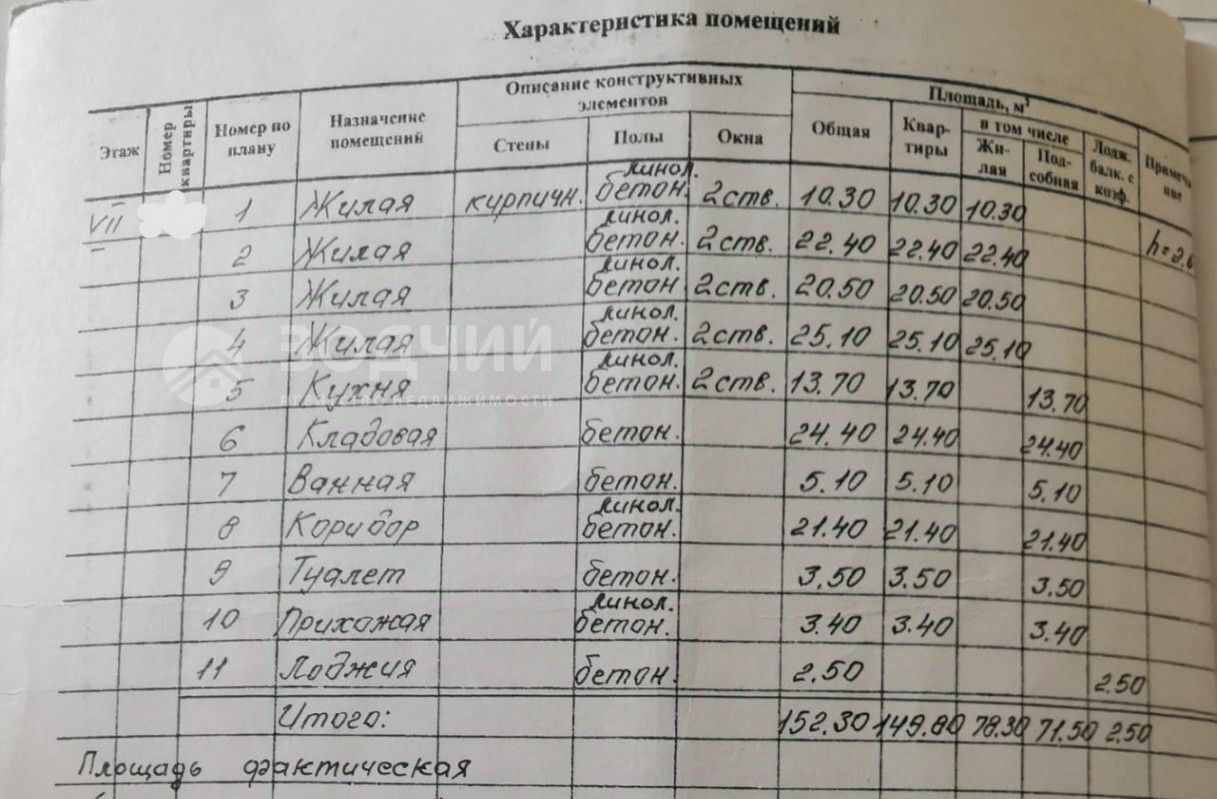 Характеристика помещений
Этаж Номер квартиры Номер по плану Назначение помещений Описание конструктивных элементов Площадь, м²
Стены Полы Окна Общая Квар-тиры в том числе Лодж. балк. с коэф.
Жи-лая Под-собная
VII 1 Жилая кирпичн. линол. бетон. 2 ств. 10.30 10.30 10.30
2 Жилая линол. бетон. 2 ств. 22.40 22.40 22.40
3 Жилая линол. бетон 2 ств. 20.50 20.50 20.50
4 Жилая линол. бетон. 2 ств. 25.10 25.10 25.10
5 Кухня линол. бетон. 2 ств. 13.70 13.70 13.70
6 Кладовая бетон. 24.40 24.40 24.40
7 Ванная бетон. 5.10 5.10 5.10
8 Коридор линол. бетон. 21.40 21.40 21.40
9 Туалет бетон. 3.50 3.50 3.50
10 Прихожая линол. бетон. 3.40 3.40 3.40
11 Лоджия бетон. 2.50 2.50
Итого: 152.30 149.80 78.30 71.50 2.50
Площадь фактическая
ЗОДЧИЙ